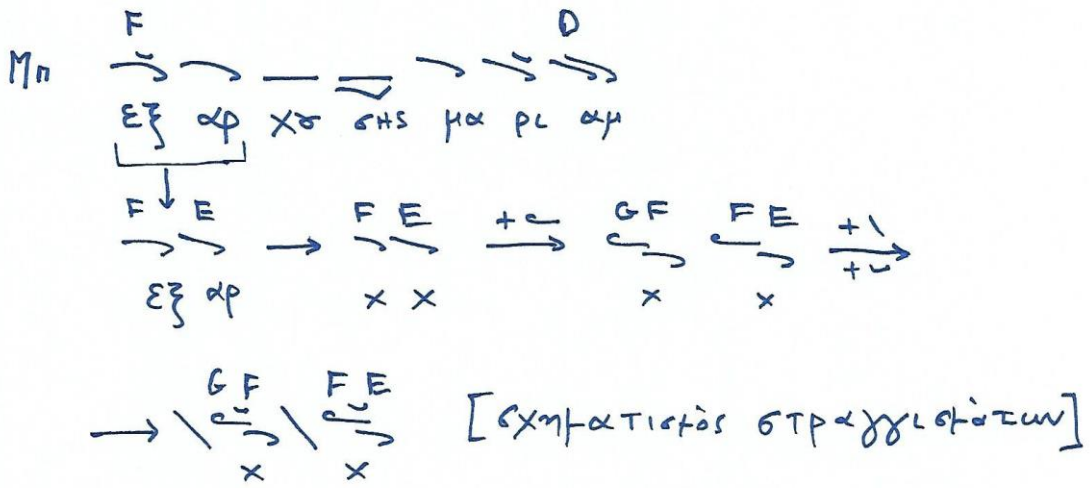 F D
Μπ
εξ αρ χο σης μα ρι αμ
F E F E + G F F E +\
+
εξ αρ x x x x
G F F E [σχηματισμὸς στραγγισμάτων]
x x